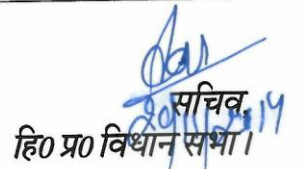 सचिव,
हि0 प्र0 विधान सभा।